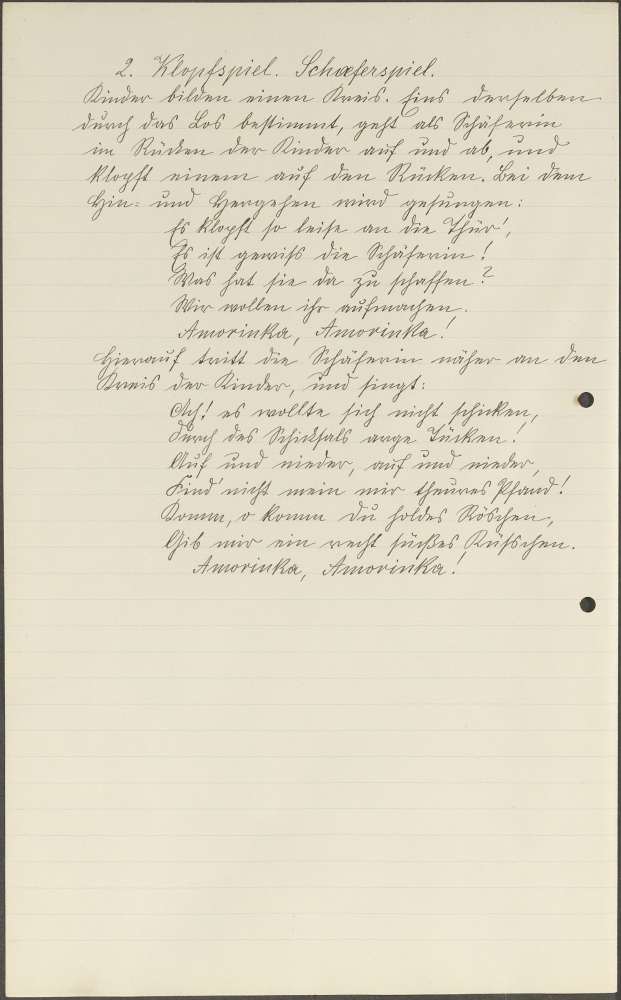 2. Klopfspiel. Schæferspiel.
Kinder bilden einen Kreis. Eins derselben
durch das Los bestimmt, geht als Schäferin
im Rücken der Kinder auf und ab, und
klopft einem auf den Rücken. Bei dem
Hin= und Hergehen wird gesungen:
Es klopft so leise an die Thür',
Es ist gewiss die Schäferin!
Was hat sie da zu schaffen?
Wir wollen ihr aufmachen.
Amorinka, Amorinka!
Hierauf tritt die Schäferin näher an den
Kreis der Kinder, und singt:
Ach! es wollte sich nicht schicken,
Durch des Schicksals arge Tücken!
Auf und nieder, auf und nieder,
Find' nicht mein mir theures Pfand!
Komm, o komm du holdes Röschen,
Gib mir ein recht süßes Küsschen.
Amorinka, Amorinka!